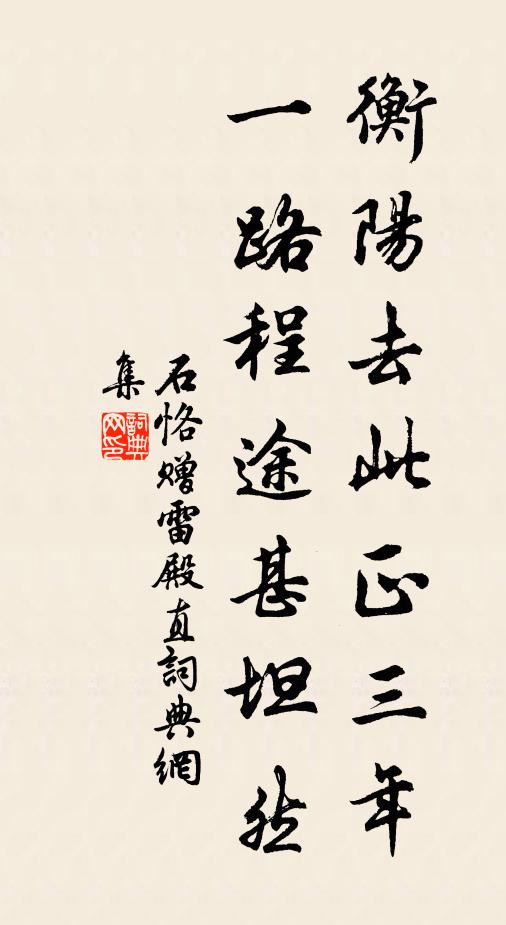 衡陽去此正三年
一路程途甚坦然
石恪贈雷殿直詞典網
集
詞典网印